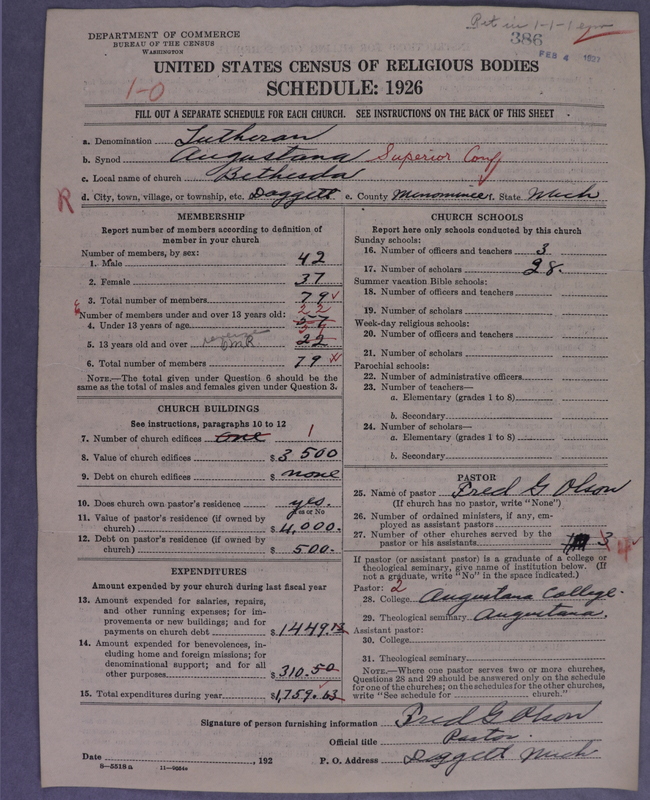 Ret in 1-1-1
386
FEB 4 1927
DEPARTMENT OF COMMERCE
BUREAU OF THE CENSUS
WASHINGTON
UNITED STATES CENSUS OF RELIGIOUS BODIES
SCHEDULE: 1926
1-0
FILL OUT A SEPARATE SCHEDULE FOR EACH CHURCH. SEE INSTRUCTIONS ON THE BACK OF THIS SHEET
a. Denomination Lutheran
b. Synod Augustana Superior Conf
c. Local name of church Bethesda
R
d. City, town, village, or township, etc. Daggett e. County Menominee f. State Mich
MEMBERSHIP
Report number of members according to definition of
member in your church
Number of members, by sex:
1. Male 42
2. Female 37
3. Total number of members 79
Number of members under and over 13 years old: 22
4. Under 13 years of age 57
5. 13 years old and over 22 57
6. Total number of members 79
NOTE.—The total given under Question 6 should be the
same as the total of males and females given under Question 3.
CHURCH BUILDINGS
See instructions, paragraphs 10 to 12
7. Number of church edifices one 1
8. Value of church edifices $ 3 500
9. Debt on church edifices $ none
10. Does church own pastor's residence yes.
Yes or No
11. Value of pastor's residence (if owned by
church) $ 4,000.
12. Debt on pastor's residence (if owned by
church) $ 500.
EXPENDITURES
Amount expended by your church during last fiscal year
13. Amount expended for salaries, repairs,
and other running expenses; for im-
provements or new buildings; and for
payments on church debt $ 1449.13
14. Amount expended for benevolences, in-
cluding home and foreign missions; for
denominational support; and for all
other purposes $ 310.50
15. Total expenditures during year $ 1,759.63
CHURCH SCHOOLS
Report here only schools conducted by this church
Sunday schools:
16. Number of officers and teachers 3
17. Number of scholars 28.
Summer vacation Bible schools:
18. Number of officers and teachers
19. Number of scholars
Week-day religious schools:
20. Number of officers and teachers
21. Number of scholars
Parochial schools:
22. Number of administrative officers
23. Number of teachers—
a. Elementary (grades 1 to 8)
b. Secondary
24. Number of scholars—
a. Elementary (grades 1 to 8)
b. Secondary
PASTOR
25. Name of pastor Fred G Olson
(If church has no pastor, write "None")
26. Number of ordained ministers, if any, em-
ployed as assistant pastors
27. Number of other churches served by the
pastor or his assistants 3
If pastor (or assistant pastor) is a graduate of a college or
theological seminary, give name of institution below. (If
not a graduate, write "No" in the space indicated.)
Pastor: 2
28. College Augustana College.
29. Theological seminary Augustana.
Assistant pastor:
30. College
31. Theological seminary
NOTE.—Where one pastor serves two or more churches,
Questions 28 and 29 should be answered only on the schedule
for one of the churches; on the schedules for the other churches,
write "See schedule for church."
Signature of person furnishing information Fred G Olson
Official title Pastor.
Date , 192 P. O. Address Daggett Mich
8-5518 a